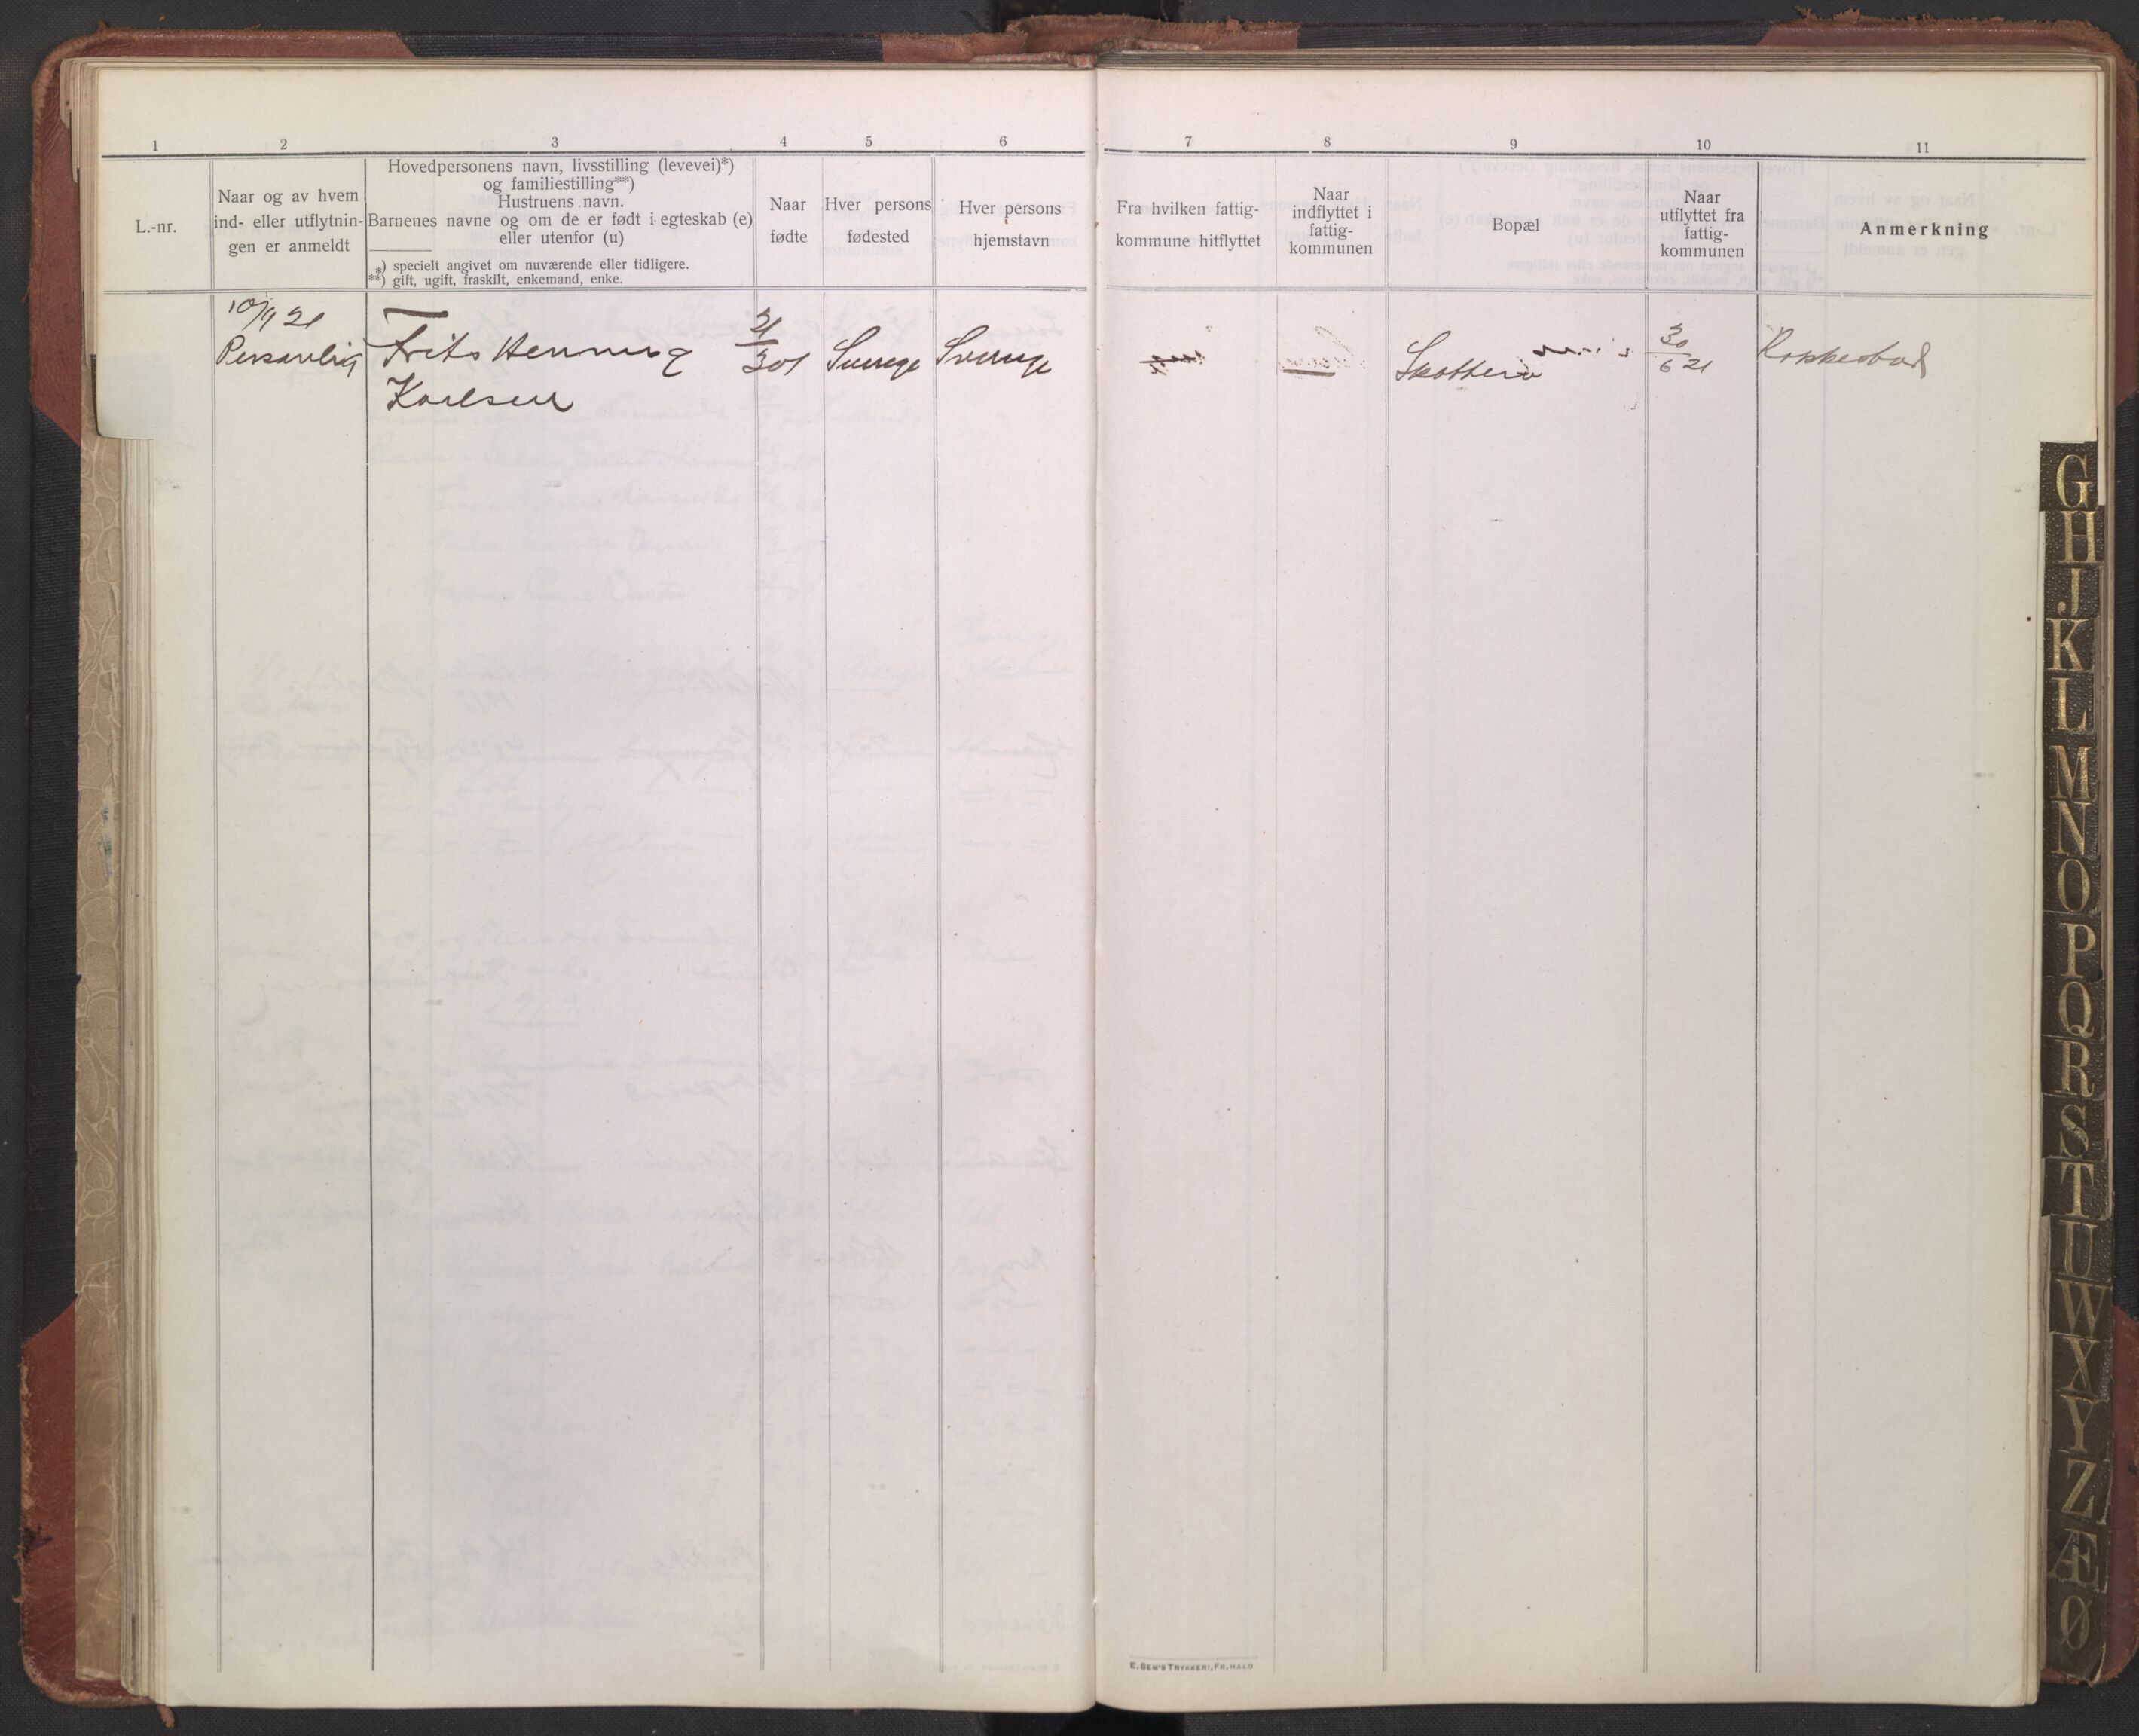 1 2 3 4 5 6 7 8 9 10 11
L.-nr.
Naar og av hvem
ind- eller utflytnin-
gen er anmeldt
Hovedpersonens navn, livsstilling (levevei)*)
og familiestilling**)
Hustruens navn.
Barnenes navne og om de er født i egteskab (e)
eller utenfor (u)
*) specielt angivet om nuværende eller tidligere.
**) gift, ugift, fraskilt, enkemand, enke.
Naar
fødte
Hver persons
fødested
Hver persons
hjemstavn
Fra hvilken fattig-
kommune hitflyttet
Naar
indflyttet i
fattig-
kommunen
Bopæl
Naar
utflyttet fra
fattig-
kommunen
Anmerkning
10/9 21
Personlig
Frits Henning
Karlsen
21/3 01
Sverige
Sverige
30/6 21
Rakkestad
E. SEM'S TRYKKERI, FR.HALD
G
H
J
K
L
M
N
O
P
Q
R
S
T
U
W
X
Y
Z
Æ
Ø